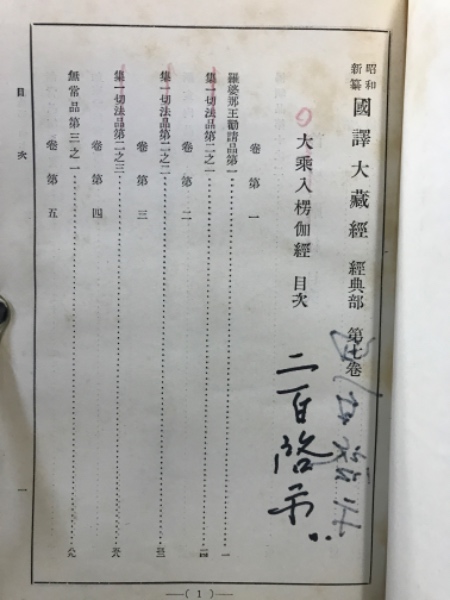 昭和新纂 國譯大藏經 經典部 第七卷
大乘入楞伽經 目次
卷第一
羅婆那王勸請品第一……一
集一切法品第二之一……二四
卷第二
集一切法品第二之二……三三
卷第三
集一切法品第二之三……五八
卷第四
無常品第三之一……八九
卷第五
目次
一
( 1 )